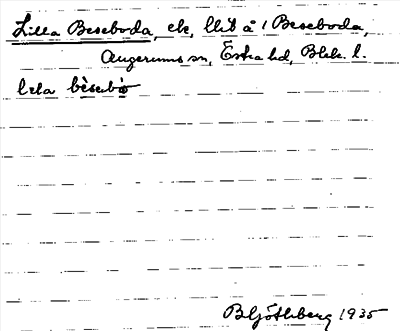 Lilla Beseboda, ek, llit å 1 Beseboda,
Augerums sn, Östra hd, Blek. l.
lela bèsebò
B Göthberg 1935